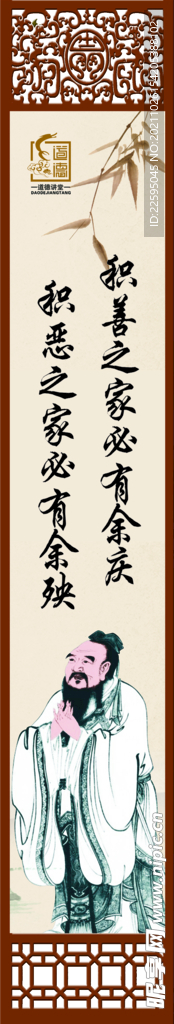 积善之家必有余庆
积恶之家必有余殃
道德讲堂
DAODEJIANGTANG
www.nipic.cn
昵享网